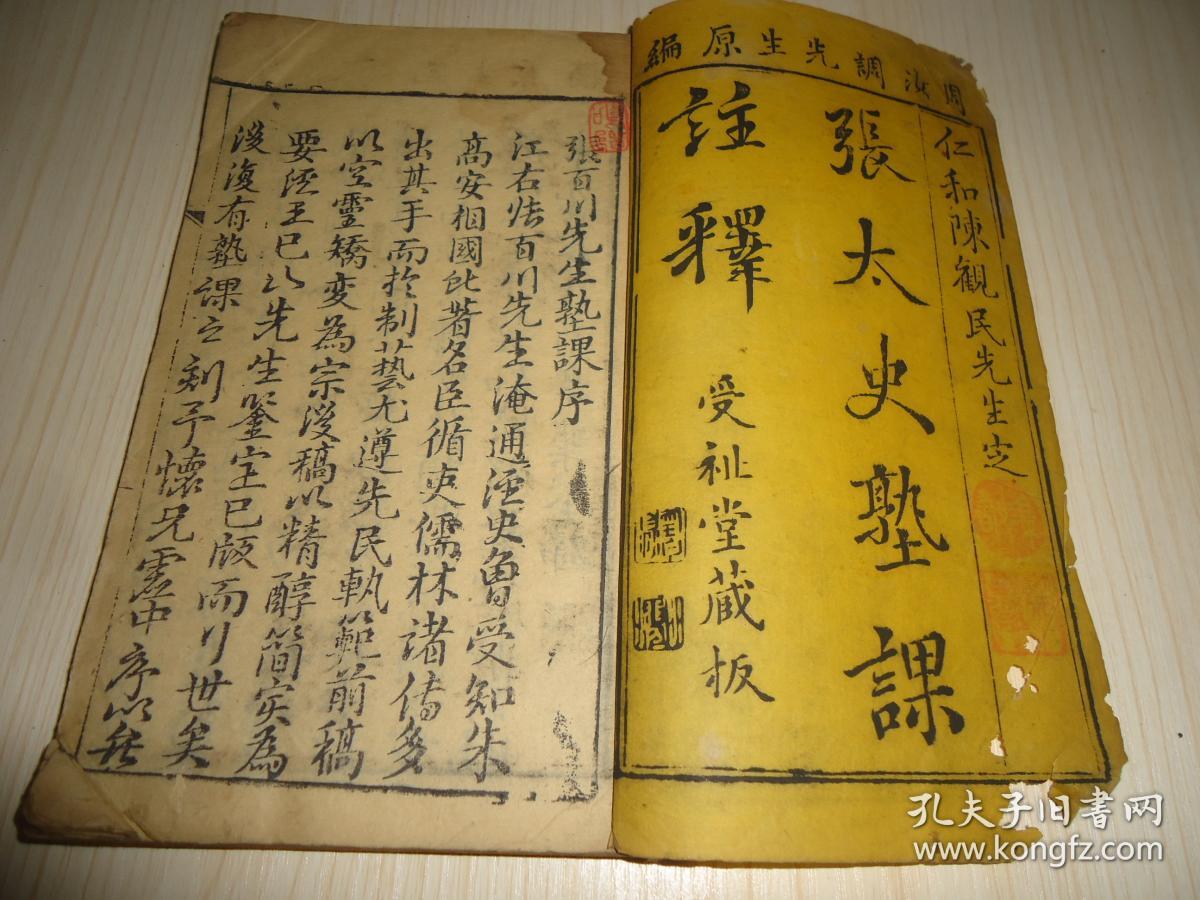 周汝調先生原編
仁和陳觀民先生定
張太史塾課
註釋
受祉堂藏板
張百川先生塾課序
江右張百川先生淹通經史曾受知朱
高安相國此著名臣循吏儒林諸傳多
出其手而於制藝尤遵先民執範前稿
以空靈矯變為宗後稿以精醇簡實為
要經王巳山先生鑒定已版而行世矣
後復有塾課之刻予懷兄雲中序以
孔夫子旧书网
www.kongfz.com